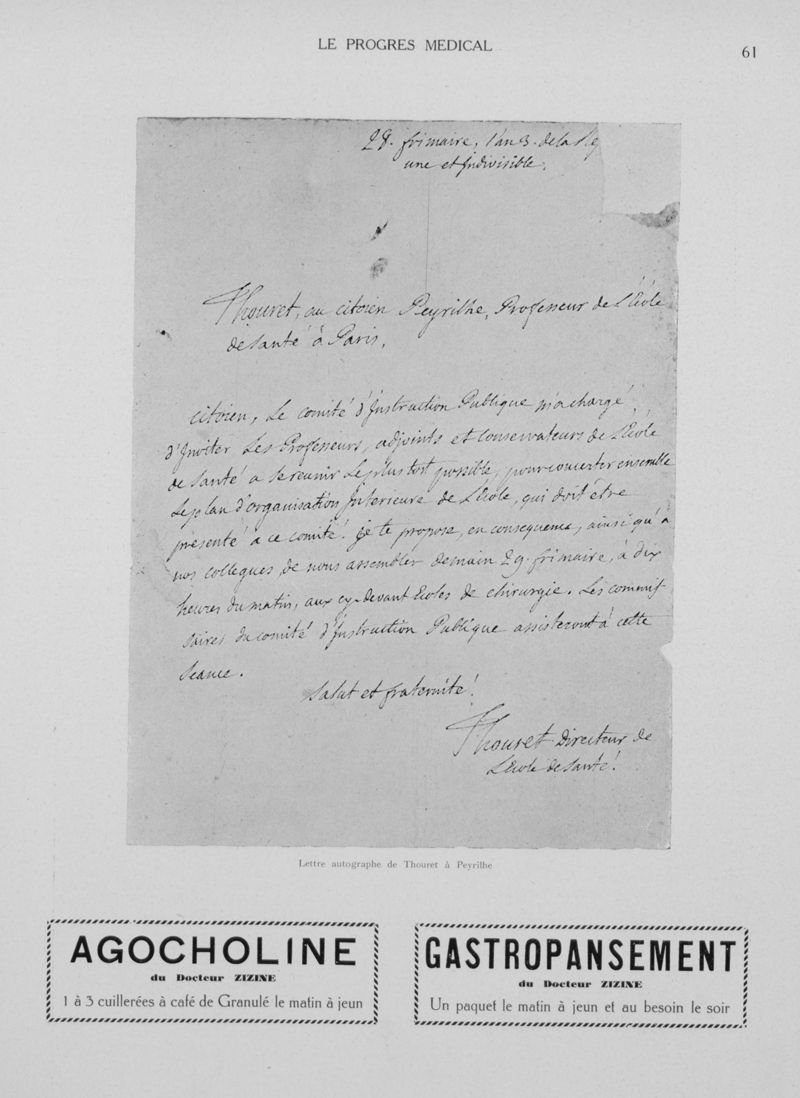 LE PROGRES MEDICAL
61
28. frimaire, l'an 3. de la
une et Indivisible.
Thouret, au citoien Peyrilhe, Professeur de l'Ecole
de santé à Paris.
citoien, Le comité d'Instruction Publique m'a chargé
d'Inviter Les Professeurs, adjoints et conservateurs de L'Ecole
de santé a se reunir Le plus tost possible, pour concerter ensemble
Le plan d'organisation Interieure de L'Ecole, qui doit être
présenté a ce comité. Je te propose, en consequence, ainsi qu'à
nos collegues de nous assembler demain 29. frimaire, à dix
heures du matin, aux cy-devant Ecoles de chirurgie. Les commis
saires du comité d'Instruction Publique assisteront à cette
seance.
salut et fraternité!
Thouret Directeur de
L'Ecole de santé!
Lettre autographe de Thouret à Peyrilhe
AGOCHOLINE
du Docteur ZIZINE
1 à 3 cuillerées à café de Granulé le matin à jeun
GASTROPANSEMENT
du Docteur ZIZINE
Un paquet le matin à jeun et au besoin le soir